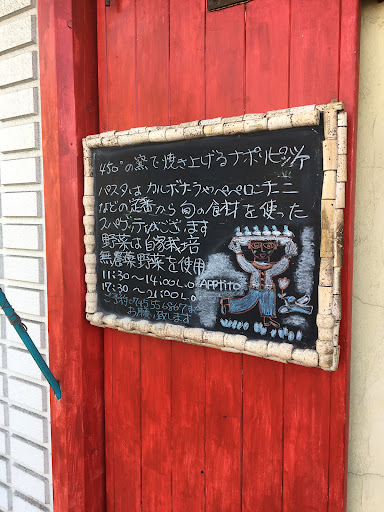 450°の窯で焼き上げるナポリピッツァ
パスタはカルボナーラやペペロンチーニ
などの定番から旬の食材を使った
スパゲティがございます
野菜は自家栽培
無農薬野菜を使用
11:30〜14:00L.O
17:30〜21:00L.O
Appetito
お願い致します